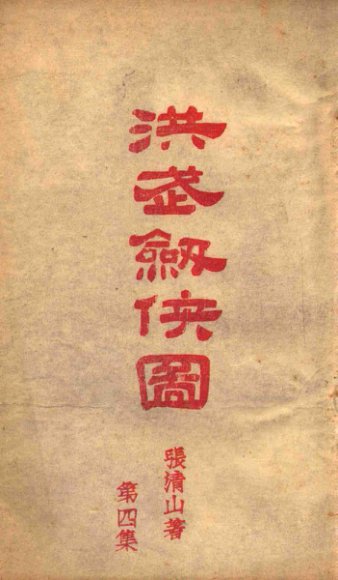 洪武劍俠圖
張清山著
第四集